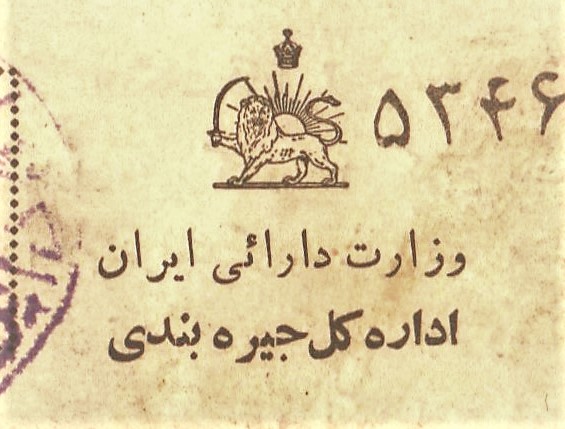 ۵۳۴۶
وزارت دارائی ایران
اداره کل جیره بندی